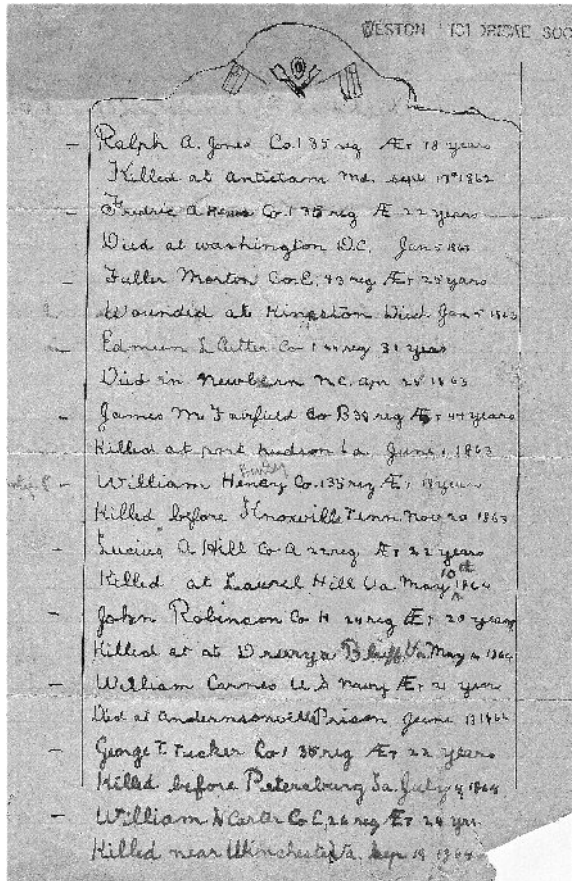 WESTON
Ralph A. Jones Co. I 35 reg Æt 18 years
Killed at Antietam Md. Sept 17th 1862
Fredric A Hews Co. I 35 reg Æ 22 years
Died at Washington D.C. Jan 5 1863
Fuller Morton Co. E, 43 reg Æt 25 years
Wounded at Kingston Died Jan 5 1863
Edmun L Cutter Co I 44 reg 31 years
Died in Newbern N.C. Apr 28 1863
James M. Fairfield Co B 38 reg Æt 44 years
Killed at port Hudson La. June, 1863
William Henry Co. I 35 reg Æt 18 years
Killed before Knoxville Tenn. Nov 20 1863
Lucius A Hill Co A 22 reg Æt 22 years
Killed at Laurel Hill Va May 10th 1864
John Robinson Co H 24 reg Æt 20 years
Killed at at Drurys Bluff, Va. May 1864
William Carnes U S Navy Æt 21 years
Died at Andernsonville Prison June 13 1864
George T. Tucker Co I 35 reg Æt 22 years
Killed before Petersburg Va. July 4 1864
William H Carter Co E, 26 reg Æt 24 yrs.
Killed near Winchester Va. Sept 19 1864